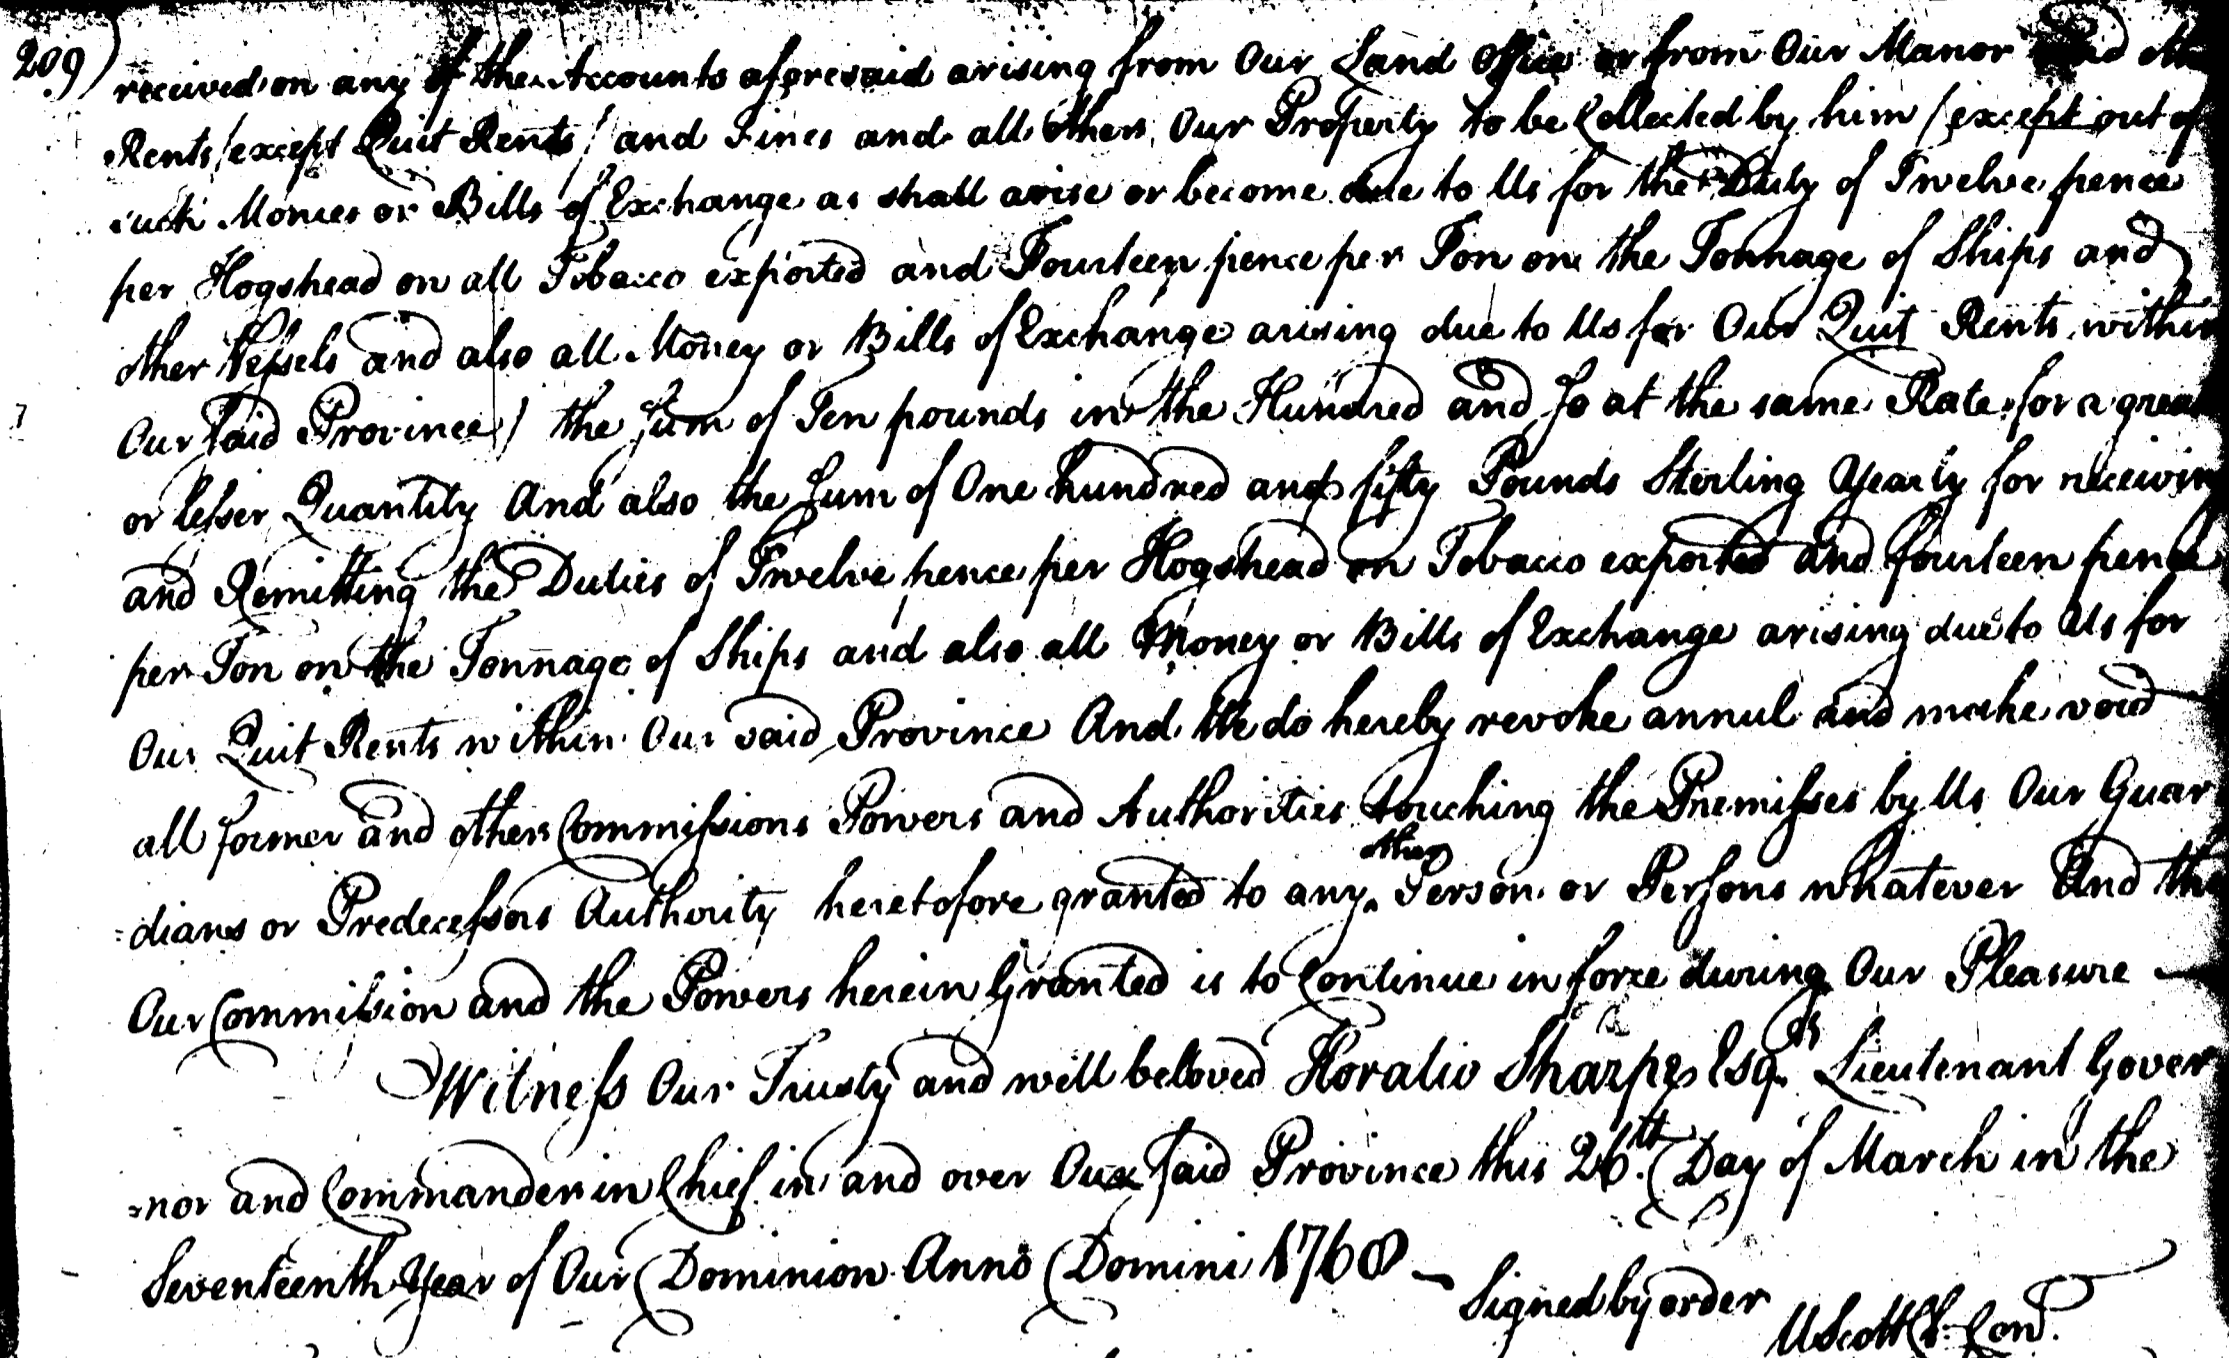 209) received on any of the Accounts aforesaid arising from Our Land Office or from Our Manor and
Rents (except Quit Rents) and Fines and all others Our Property to be Collected by him (except out of
such Monies or Bills of Exchange as shall arise or become due to Us for the Duty of Twelve pence
per Hogshead on all Tobacco exported and Fourteen pence per Ton on the Tonnage of Ships and
other Vessels and also all Money or Bills of Exchange arising due to Us for Our Quit Rents within
Our Said Province) the Sum of Ten pounds in the Hundred and So at the same Rate for a great
or lesser Quantity And also the Sum of One hundred and fifty Pounds Sterling Yearly for receiving
and Remitting the Duties of Twelve pence per Hogshead on Tobacco exported and fourteen pence
per Ton on the Tonnage of Ships and also all Money or Bills of Exchange arising due to Us for
Our Quit Rents within Our said Province And We do hereby revoke annul and make void
all former and other Commissions Powers and Authorities touching the Premisses by Us Our Guar
=dians or Predecessors Authority heretofore granted to any other Person or Persons whatever And this
Our Commission and the Powers herein Granted is to Continue in force during Our Pleasure —
Witness Our Trusty and well beloved Horatio Sharpe Esqr. Lieutenant Gover
=nor and Commander in Chief in and over Our Said Province this 26th. Day of March in the
Seventeenth Year of Our Dominion Anno Domini 1768 —
Signed by order
U Scott Cl. Con.